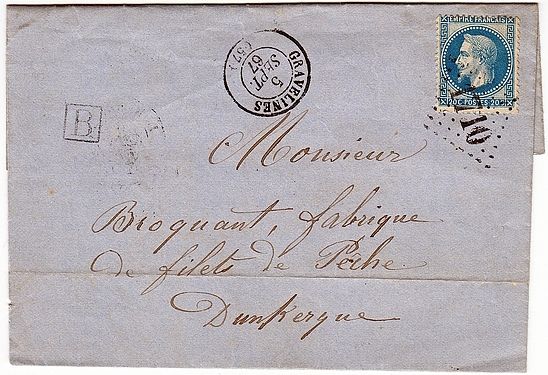 EMPIRE FRANÇAIS
20C POSTES 20C
GRAVELINES
5
SEPT.
67
(57)
B
Monsieur
Bioquant, fabrique
de filets de Pêche
Dunkerque